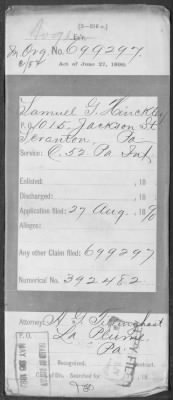 [3-216 a.]
Org. No. 699297
Act of June 27, 1890.
Samuel G. Hinckley
P.O. 1015. Jackson St
Scranton, Pa
Service: C. 52 Pa Inf,
Enlisted: , 18
Discharged: , 18
Application filed: 27 Aug. 1890
Alleges:
Any other Claim filed: 699297
Numerical No. 392482
Attorney:
P.O. La Plume
Pa
Recognized. Contract.
Searched for , 18